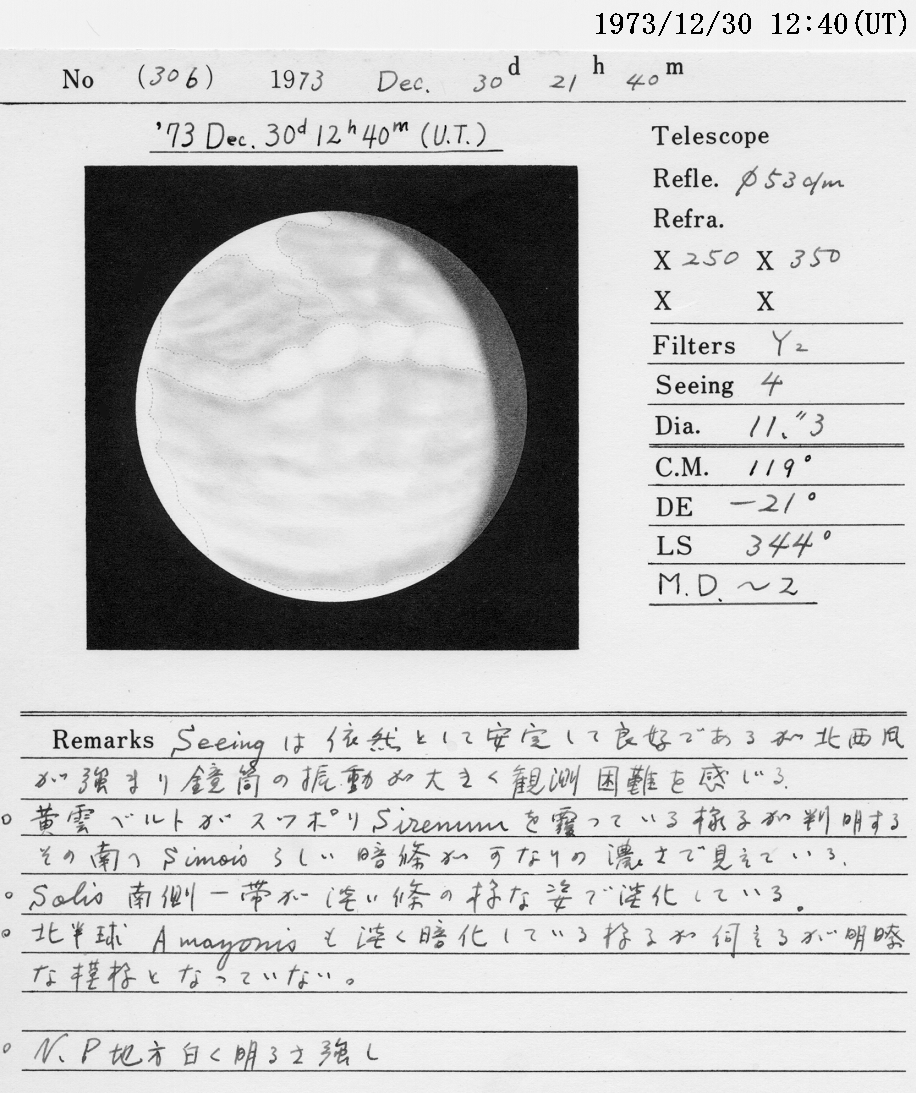 1973/12/30 12:40(UT)
No (306) 1973 Dec. 30d 21h 40m
'73 Dec. 30d 12h 40m (U.T.)
Telescope
Refle. φ53c/m
Refra.
X 250 X 350
X X
Filters Y2
Seeing 4
Dia. 11."3
C.M. 119°
DE −21°
LS 344°
M.D. ~2
Remarks Seeingは依然として安定して良好であるが北西風
が強まり鏡筒の振動が大きく観測困難を感じる.
○ 黄雲ベルトがスッポリSirenumを覆っている様子が判明する
その南へSimoisらしい暗條がかなりの濃さで見えている.
○ Solis南側一帯が淡い條の様な姿で淡化している。
○ 北半球 Amazonisも淡く暗化している様子が伺えるが明瞭
な模様となっていない。
○ N.P地方白く明るさ強し